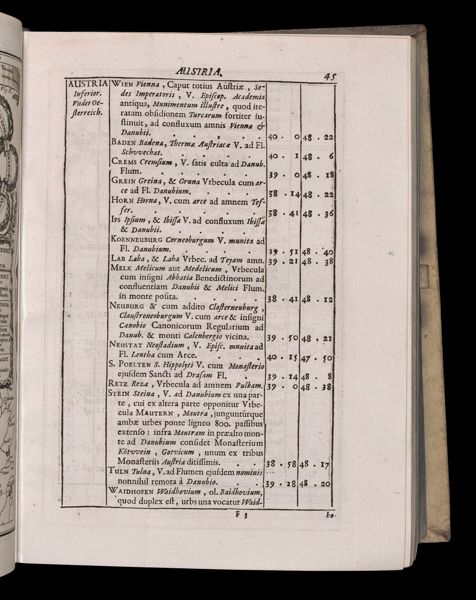 AUSTRIA.
45
AUSTRIA
Inferior.
Vnder Oe-
sterreich.
WIEN Vienna, Caput totius Austriæ, Se-
des Imperatoris, V. Episcop. Academia
antiqua, Munimentum illustre, quod ite-
ratam obsidionem Turcarum fortiter su-
stinuit, ad confluxum amnis Viennæ &
Danubii. 40 . 0 48 . 22
BADEN Badena, Thermæ Austriacæ V. ad Fl.
Schvvechat. 40 . 1 48 . 6
CREMS Cremsium, V. satis culta ad Danub.
Flum. 39 . 0 48 . 18
GREIN Greina, & Gruna Vrbecula cum ar-
ce ad Fl. Danubium. 38 . 14 48 . 22
HORN Horna, V. cum arce ad amnem Tef-
fer. 38 . 41 48 . 36
IPS Ipsium, & Ibissa V. ad confluxum Ibissæ
& Danubii.
KORNNEUBURG Corneoburgum V. munita ad
Fl. Danubium. 39 . 51 48 . 40
LAB Laba, & Laha Vrbec. ad Teyam amn. 39 . 21 48 . 38
MELK Melicum aut Medelicum, Vrbecula
cum insigni Abbatia Benedictinorum ad
confluentiam Danubii & Melici Flum.
in monte posita. 38 . 41 48 . 12
NEUBURG & cum addito Closterneuburg,
Claustroneoburgum V. cum arce & insigni
Canobio Canonicorum Regularium ad
Danub. & monti Calenbergio vicina. 39 . 50 48 . 21
NEUSTAT Neostadium, V. Episc. munita ad
Fl. Lentha cum Arce. 40 . 15 47 . 50
S. POELTEN S. Hippolyti V. cum Monasterio
ejusdem Sancti ad Drasam Fl. 39 . 14 48 . 8
RETZ Reza, Vrbecula ad amnem Pulkam. 39 . 0 48 . 38
STEIN Steina, V. ad Danubium ex una par-
te, cui ex altera parte opponitur Vrbe-
cula MAUTERN, Mautra, junguntúrque
ambæ urbes ponte ligneo 800. passibus
extenso: infra Mautram in præalto mon-
te ad Danubium considet Monasterium
Kötvvein, Gotvicum, unum ex tribus
Monasteriis Austriæ ditissimis. 38 . 58 48 . 17
TULN Tulna, V. ad Flumen ejusdem nominis
nonnihil remota à Danubio. 39 . 28 48 . 20
WAIDHOFEN Waidhovium, ol. Baidhovium,
quod duplex est, urbs una vocatur Waid-
F 3
ho-